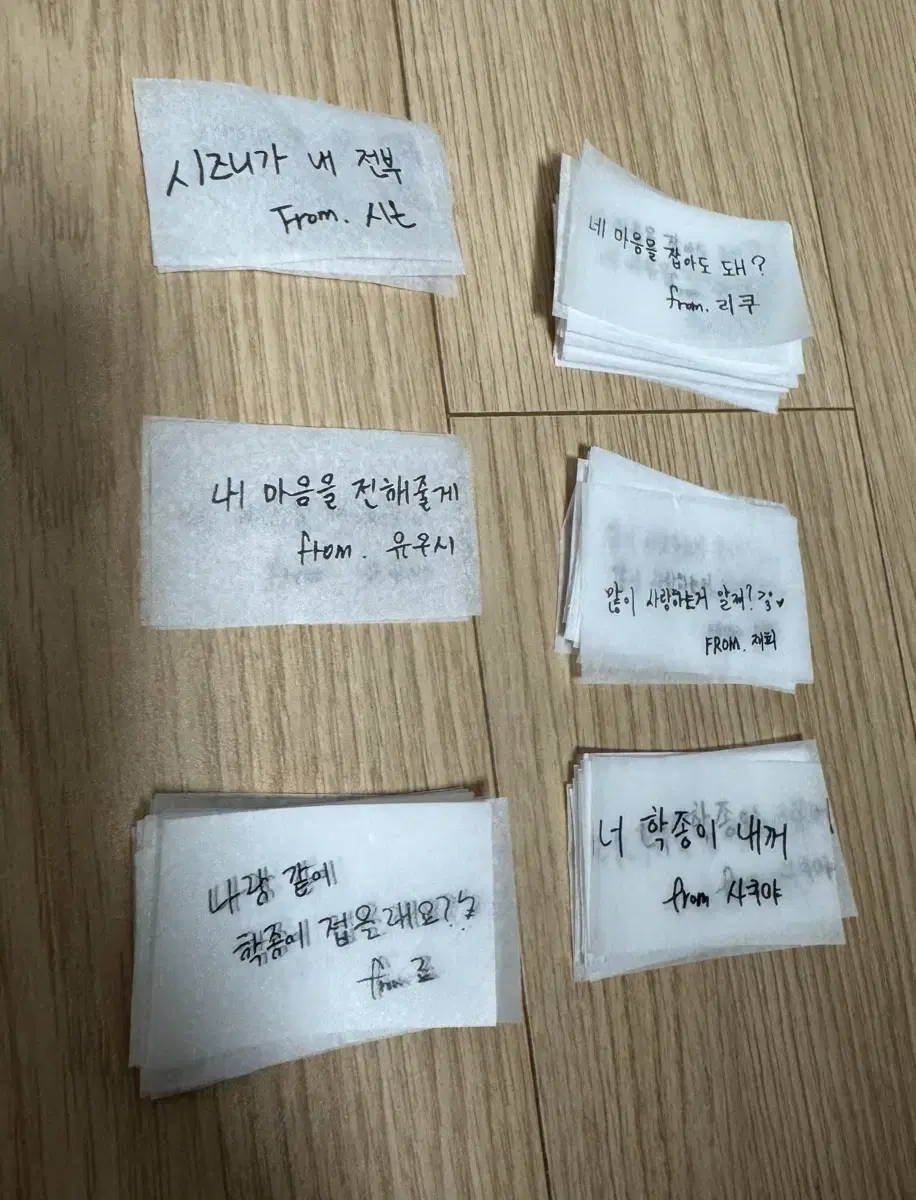 시즈니가 내 전부
From. 시온
네 마음을 잡아도 돼?
from. 리쿠
내 마음을 전해줄게
from. 유우시
많이 사랑하는거 알죠?
FROM. 재희
나랑 같이
학종이 접을래요??
from 료
너 학종이 내꺼
from 사쿠야